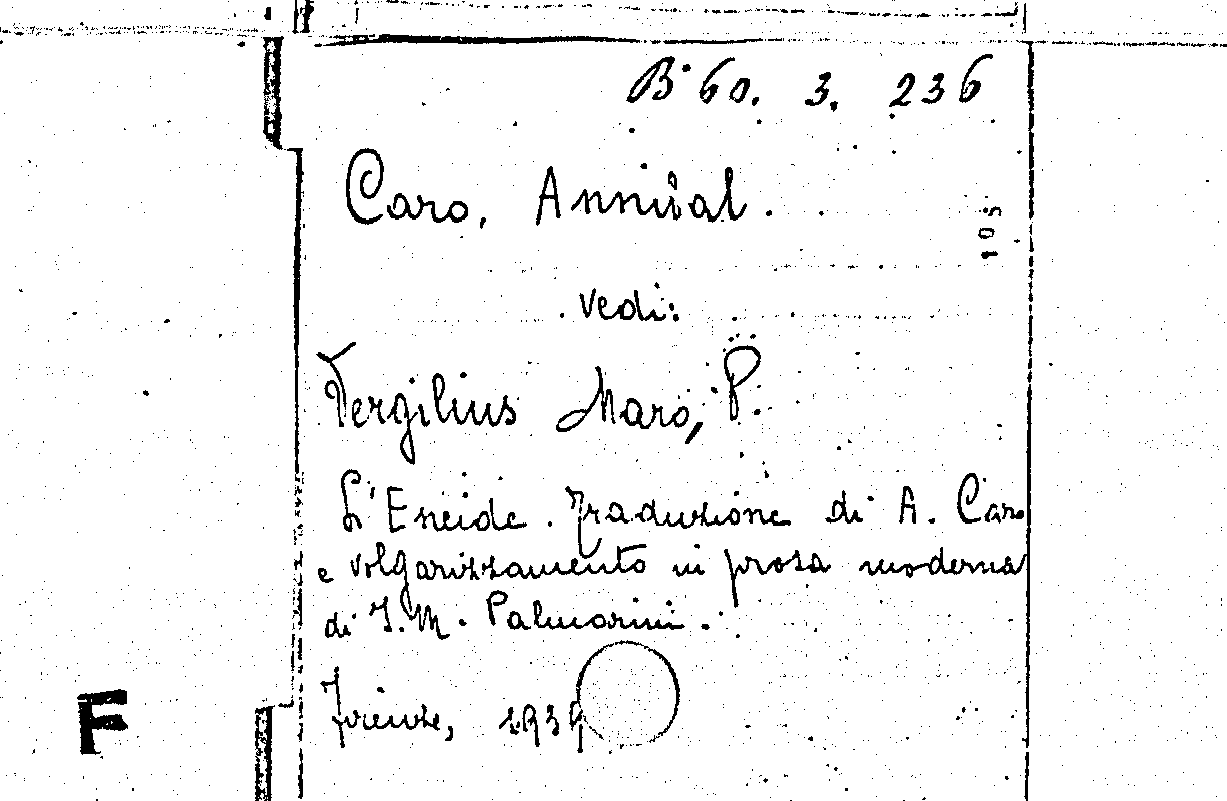 B° 60. 3. 236
Caro, Annibal.
105
vedi:
Vergilius Maro, P.
L'Eneide. Traduzione di A. Caro
e volgarizzamento in prosa moderna
di I. M. Palmarini.
Firenze, 1939
F